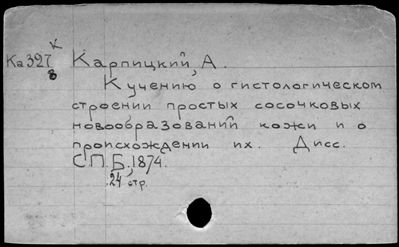 К
Ка 327 Карпицкий, А.
8
К учению о гистологическом
строении простых сосочковых
новообразований кожи и о
происхождении их. Дисс.
С.П.Б., 1874.
24 стр.